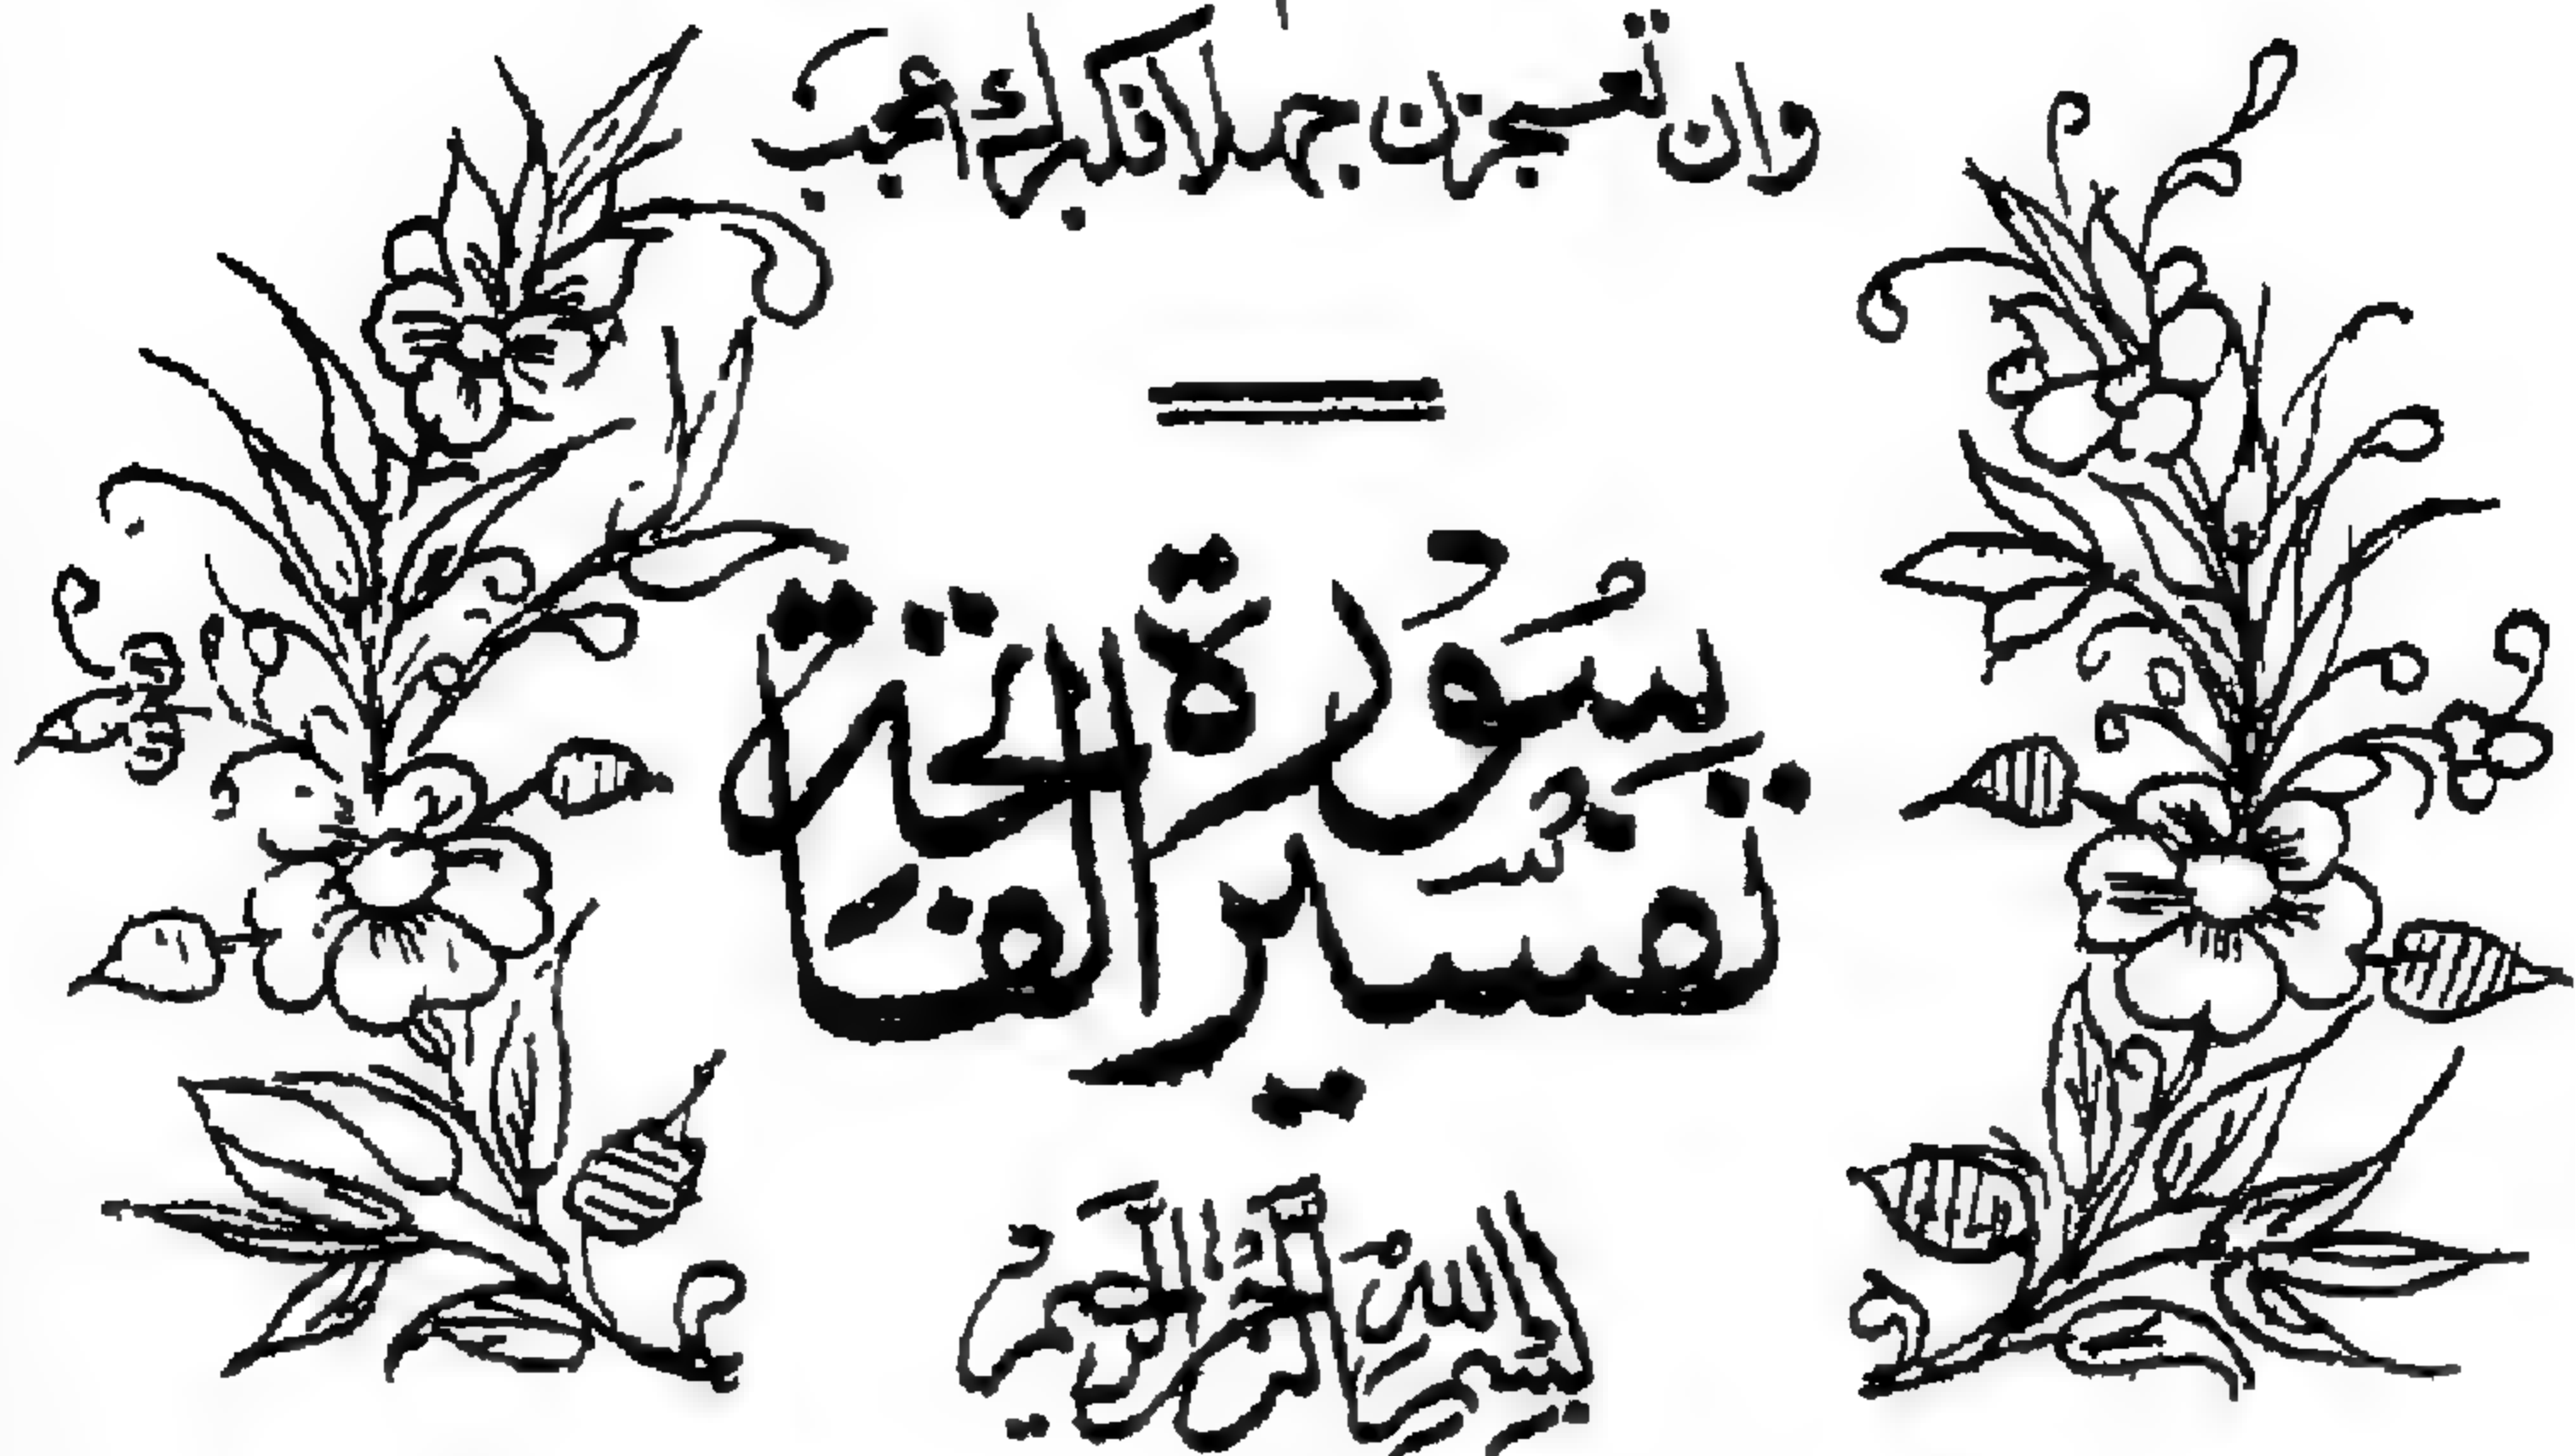 وان تعجزن جهلا فكبرك اعجب
تفسير سُورة الفاتحة
بسم الله الرحمن الرحيم